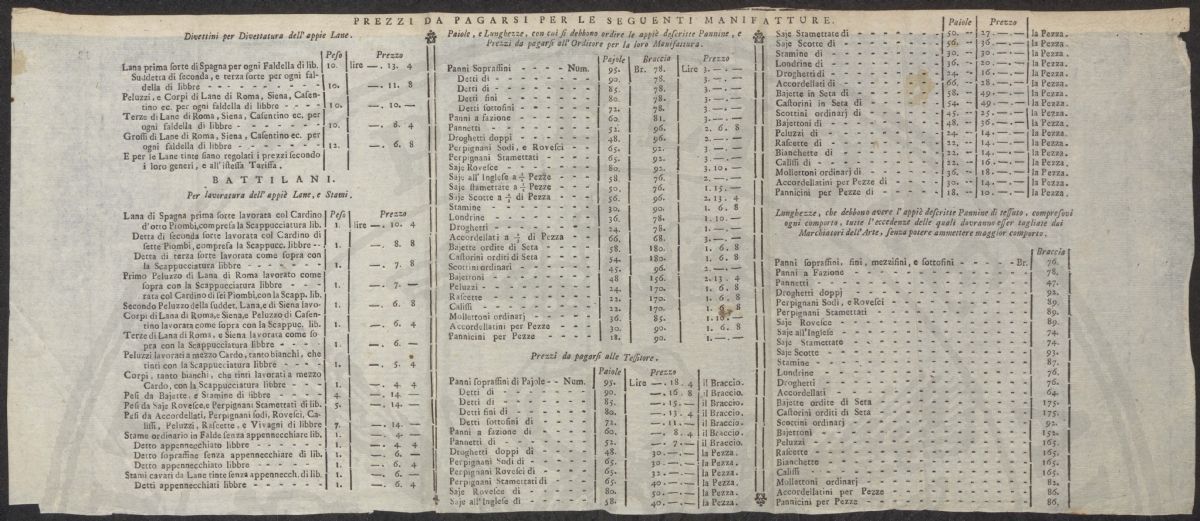 PREZZI DA PAGARSI PER LE SEGUENTI MANIFATTURE.
Divettini per Divettatura dell'appiè Lane.
Peso Prezzo
Lana prima sorte di Spagna per ogni Faldella di lib. 10. lire —. 13. 4
Suddetta di seconda, e terza sorte per ogni faldella
della di libbre - - - - 10. —. 11. 8
Peluzzi, e Corpi di Lane di Roma, Siena, Casentino
tino ec. per ogni faldella di libbre - - - - 10. —. 10. —
Terze di Lane di Roma, Siena, Casentino ec. per
ogni faldella di libbre - - - - 10. —. 8. 4
Grossi di Lane di Roma, Siena, Casentino ec. per
ogni faldella di libbre - - - - 12. —. 6. 8
E per le Lane tinte siano regolati i prezzi secondo
i loro generi, e all'istessa Tariffa.
BATTILANI.
Per lavoratura dell'appiè Lane, e Stami.
Peso Prezzo
Lana di Spagna prima sorte lavorata col Cardino
d'otto Piombi, compresa la Scappucciatura lib. 1. lire —. 10. 4
Detta di seconda sorte lavorata col Cardino di
sette Piombi, compresa la Scappucc. libbre - - 1. —. 8. 8
Detta di terza sorte lavorata come sopra con
la Scappucciatura libbre - - - - 1. —. 7. 8
Primo Peluzzo di Lana di Roma lavorato come
sopra con la Scappucciatura libbre - - - 1. —. 7. —
Secondo Peluzzo della suddet. Lana, e di Siena lavorata
rata col Cardino di sei Piombi, con la Scapp. lib. 1. —. 6. 8
Corpi di Lana di Roma, e Siena, e Peluzzo di Casentino
tino lavorata come sopra con la Scappuc. lib. 1. —. 6. 4
Terze di Lana di Roma, e Siena lavorata come sopra
pra con la Scappucciatura libbre - - - - 1. —. 6. —
Peluzzi lavorati a mezzo Cardo, tanto bianchi, che
tinti con la Scappucciatura libbre - - - - 1. —. 5. 4
Corpi, tanto bianchi, che tinti lavorati a mezzo
Cardo, con la Scappucciatura libbre - - - - 1. —. 4. 4
Pesi da Bajette, e Stamine di libbre - - - - 4. —. 14. —
Pesi da Saje Rovesce, e Perpignani Stamettati di lib. 5. —. 14. —
Pesi da Accordellati, Perpignani sodi, Rovesci, Calissi,
lissi, Peluzzi, Rascette, e Vivagni di libbre 7. —. 14. —
Stame ordinario in Falde senza appennecchiare lib. 1. —. 4. —
Detto appennecchiato libbre - - - - 1. —. 4. 4
Detto sopraffine senza appennecchiare di lib. 1. —. 6. —
Detto appennecchiato libbre - - - - 1. —. 6. 4
Stami cavati da Lane tinte senza appennecch. di lib. 1. —. 6. —
Detti appennecchiati libbre - - - - 1. —. 6. 4
Pajole, e Lunghezze, con cui si debbono ordire le appiè descritte Pannine, e
Prezzi da pagarsi all'Orditore per la loro Manifattura.
Pajole Braccia Prezzo
Panni Sopraffini - - - - Num. 95. Br. 78. Lire 3. —. —
Detti di - - - - 90. 78. 3. —. —
Detti di - - - - 85. 78. 3. —. —
Detti fini - - - - 80. 78. 3. —. —
Detti sottofini - - - - 72. 78. 3. —. —
Panni a fazione - - - - 60. 81. 3. —. —
Pannetti - - - - 52. 96. 2. 6. 8
Droghetti doppj - - - - 48. 96. 2. —. —
Perpignani Sodi, e Rovesci - - 65. 92. 3. —. —
Perpignani Stamettati - - - - 65. 92. 3. —. —
Saje Rovesce - - - - 80. 92. 3. 10. —
Saje all'Inglese a ½ Pezze - - 58. 76. 2. —. —
Saje stamettate a ½ Pezze - - 50. 76. 1. 15. —
Saje Scotte a ½ di Pezza - - 56. 96. 2. 13. 4
Stamine - - - - 30. 90. 1. 6. 8
Londrine - - - - 36. 78. 1. 10. —
Droghetti - - - - 24. 78. 1. —. —
Accordellati a ½ di Pezza - - 66. 68. 3. —. —
Bajette ordite di Seta - - - - 58. 180. 1. 6. 8
Castorini orditi di Seta - - - - 54. 180. 1. 6. 8
Scottini ordinarj - - - - 45. 96. 2. —. —
Bajettoni - - - - 48 156. 2. 13. 4
Peluzzi - - - - 24. 170. 1. 6. 8
Rascette - - - - 22. 170. 1. 6. 8
Calissi - - - - 22. 170. 1. 6. 8
Mollettoni ordinarj - - - - 36. 85. 1. 10. —
Accordellatini per Pezze - - - - 30. 90. 1. 6. 8
Pannicini per Pezze - - - - 18. 90. 1. —. —
Prezzi da pagarsi alle Tessitore.
Pajole Prezzo
Panni sopraffini di Pajole - - Num. 95. Lire —. 18. 4 il Braccio.
Detti di - - - - 90. —. 16. 8 il Braccio.
Detti di - - - - 85. —. 15. — il Braccio.
Detti fini di - - - - 80. —. 13. 4 il Braccio.
Detti sottofini di - - - - 72. —. 11. — il Braccio.
Panni a fazione di - - - - 60. —. 8. 4 il Braccio.
Pannetti di - - - - 52. —. 7. — il Braccio.
Droghetti doppj di - - - - 48. 30. —. — la Pezza.
Perpignani Sodi di - - - - 65. 30. —. — la Pezza.
Perpignani Rovesci di - - - - 65. 32. —. — la Pezza.
Perpignani Stamettati di - - - - 65. 40. —. — la Pezza.
Saje Rovesce di - - - - 80. 50. —. — la Pezza.
Saje all'Inglese di - - - - 58. 40. —. — la Pezza.
Pajole Prezzo
Saje Stamettate di - - - - 50. 27. —. — la Pezza.
Saje Scotte di - - - - 56. 36. —. — la Pezza.
Stamine di - - - - 30. 20. —. — la Pezza.
Londrine di - - - - 36. 20. —. — la Pezza.
Droghetti di - - - - 24. 16. —. — la Pezza.
Accordellati di - - - - 66. 28. —. — la Pezza.
Bajette in Seta di - - - - 58. 49. —. — la Pezza.
Castorini in Seta di - - - - 54. 49. —. — la Pezza.
Scottini ordinarj di - - - - 45. 25. —. — la Pezza.
Bajettoni di - - - - 48. 36. —. — la Pezza.
Peluzzi di - - - - 24. 14. —. — la Pezza.
Rascette di - - - - 22. 14. —. — la Pezza.
Bianchette di - - - - 22. 14. —. — la Pezza.
Calissi di - - - - 22. 16. —. — la Pezza.
Mollettoni ordinarj di - - - - 36. 18. —. — la Pezza.
Accordellatini per Pezze di - - - - 30. 14. —. — la Pezza.
Pannicini per Pezze di - - - - 18. 10. —. — la Pezza.
Lunghezze, che debbono avere l'appiè descritte Pannine di tessuto, compresovi
ogni comporto, tutte l'eccedenze delle quali dovranno esser tagliate dai
Marchiatori dell'Arte, senza potere ammettere maggior comporto.
Braccia
Panni sopraffini, fini, mezzifini, e sottofini - - - - Br. 76.
Panni a Fazione - - - - 78.
Pannetti - - - - 47.
Droghetti doppj - - - - 92.
Perpignani Sodi, e Rovesci - - - - 89.
Perpignani Stamettati - - - - 89.
Saje Rovesce - - - - 89.
Saje all'Inglese - - - - 74.
Saje Stamettate - - - - 74.
Saje Scotte - - - - 93.
Stamine - - - - 87.
Londrine - - - - 76.
Droghetti - - - - 76.
Accordellati - - - - 64.
Bajette ordite di Seta - - - - 175.
Castorini orditi di Seta - - - - 175.
Scottini ordinarj - - - - 92.
Bajettoni - - - - 152.
Peluzzi - - - - 165.
Rascette - - - - 165.
Bianchette - - - - 165.
Calissi - - - - 165.
Mollettoni ordinarj - - - - 82.
Accordellatini per Pezze - - - - 86.
Pannicini per Pezze - - - - 86.